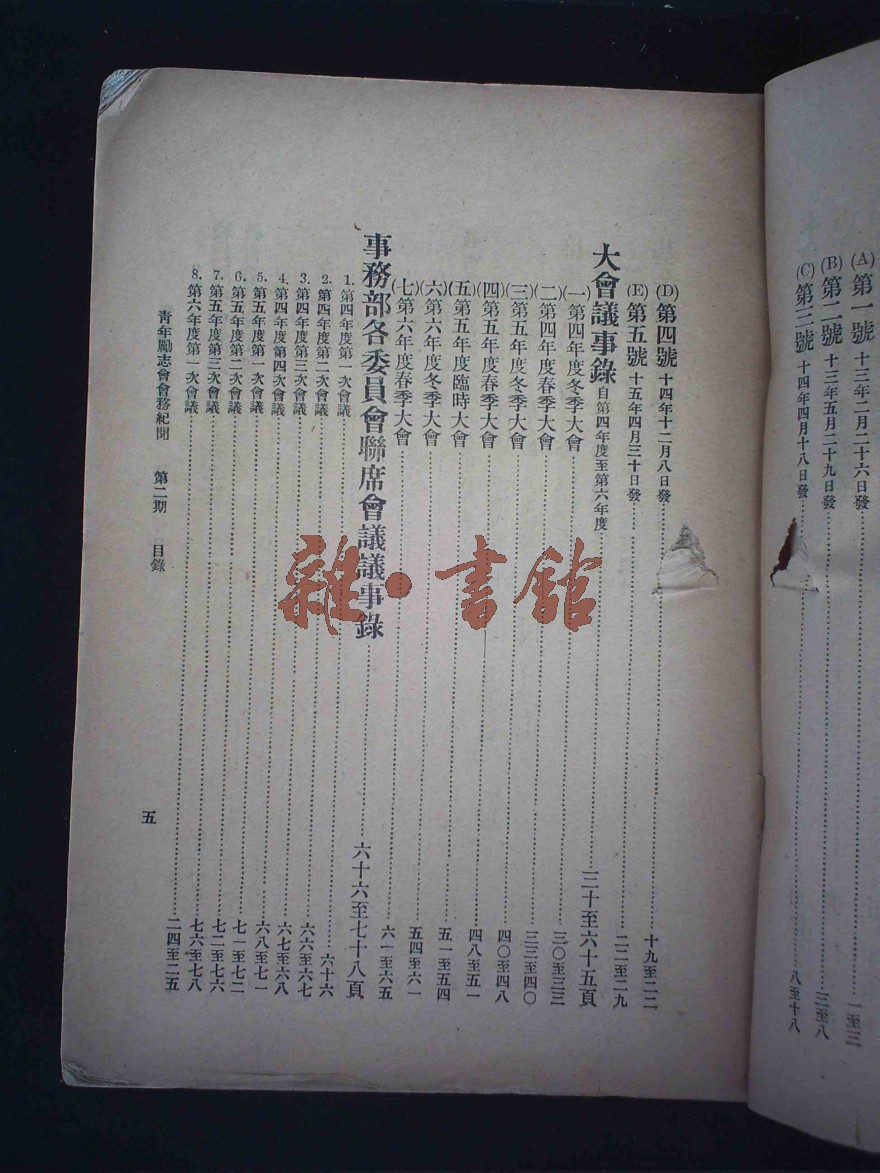 (A) 第一號 十三年二月二十六日發 一至三
(B) 第二號 十三年五月二十九日發 三至八
(C) 第三號 十四年四月十八日發 八至十八
(D) 第四號 十四年十二月八日發 十九至二二
(E) 第五號 十五年四月三十日發 二二至二九
大會議事錄 自第四年度至第六年度 三十至六十五頁
(一)第四年度冬季大會 三〇至三三
(二)第四年度春季大會 三三至四〇
(三)第五年度冬季大會 四〇至四八
(四)第五年度春季大會 四八至五一
(五)第五年度臨時大會 五一至五四
(六)第六年度冬季大會 五四至六一
(七)第六年度春季大會 六一至六五
事務部各委員會聯席會議議事錄 六十六至七十八頁
1. 第四年度第一次會議 六十六
2. 第四年度第二次會議 六六至六七
3. 第四年度第三次會議 六七至六八
4. 第四年度第四次會議 六八至七一
5. 第五年度第一次會議 七一至七二
6. 第五年度第二次會議 七二至七六
7. 第五年度第三次會議 七六至七八
8. 第六年度第一次會議 二四至二五
青年勵志會會務紀聞 第二期 目錄
五
雜·書館